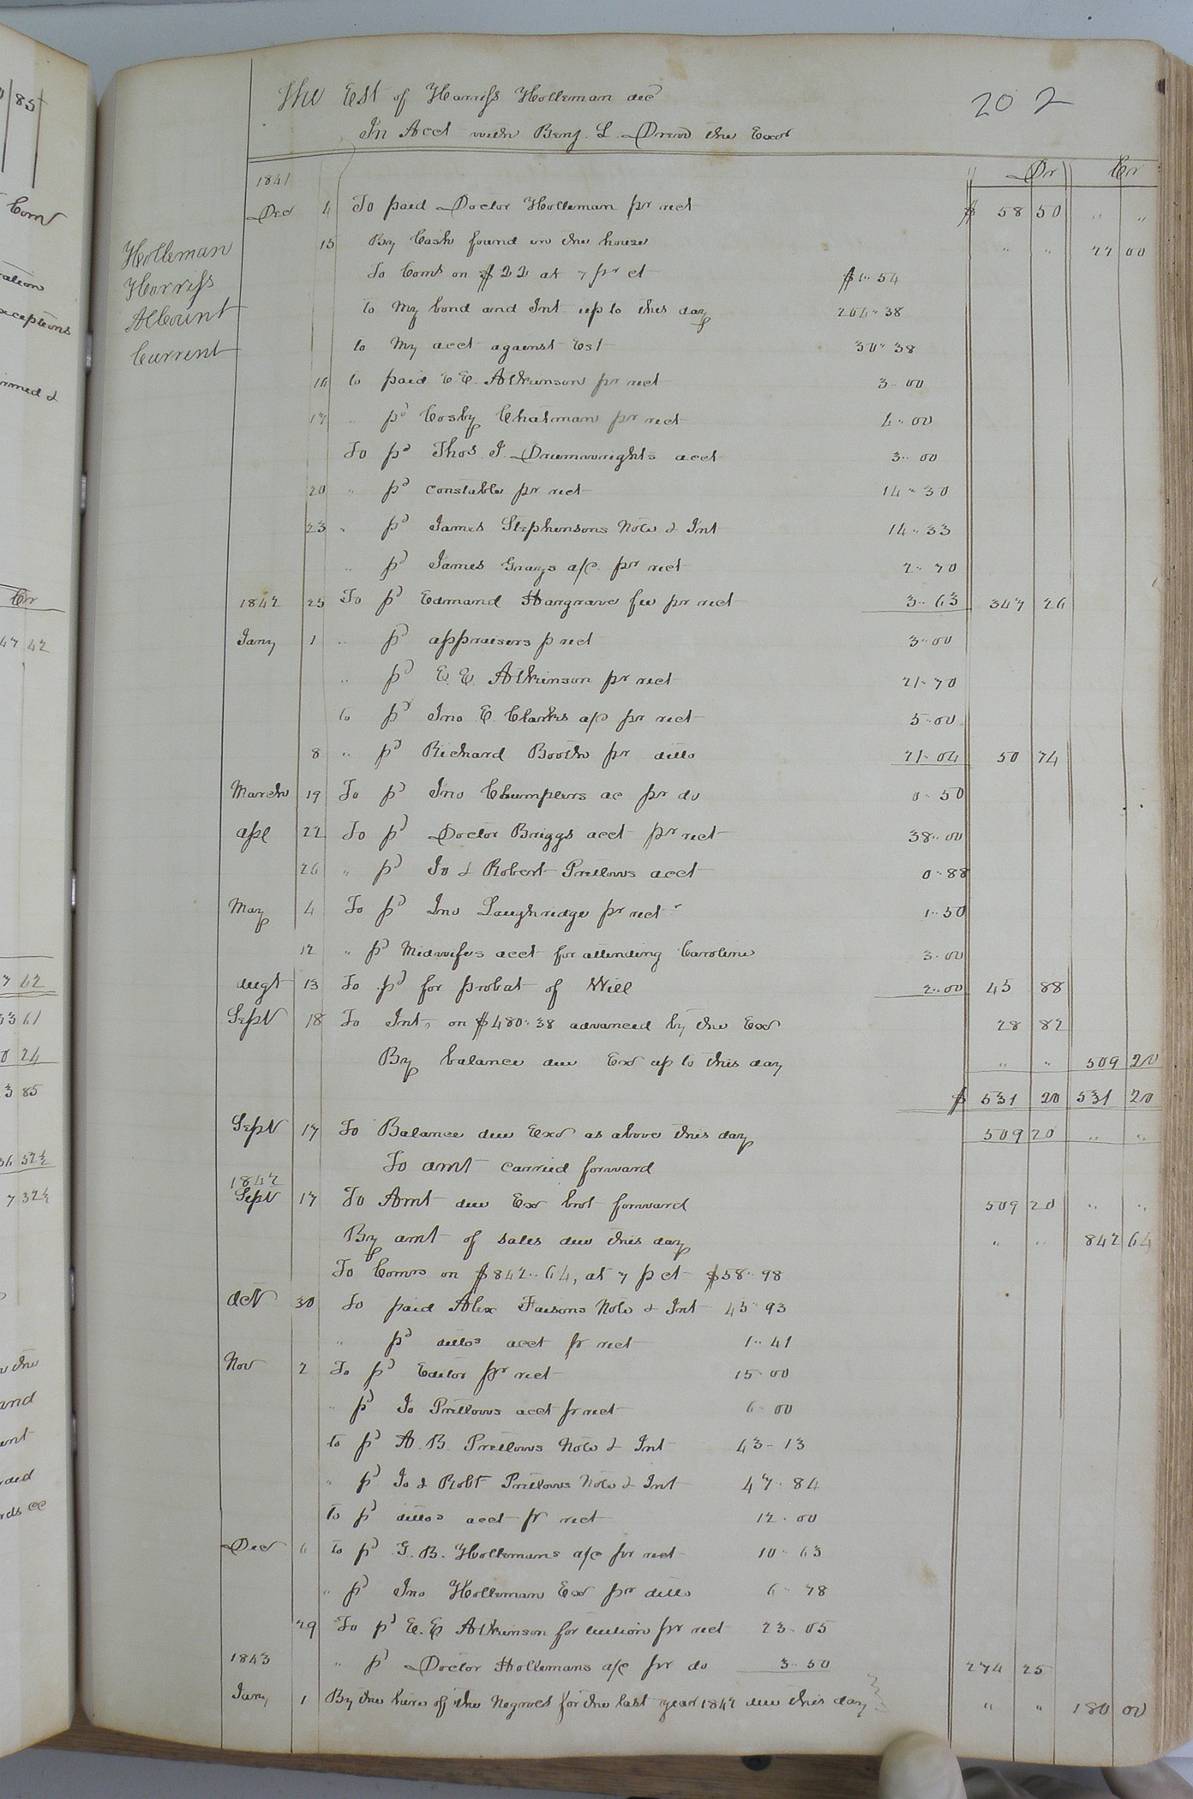 The Est of Harriss Holleman decd 202
In Acct with Benj. L. Drew the Exor
Dr Cr
1841
Dec 4 To paid Doctor Holleman pr rect $ 58 50 " "
Holleman
Harriss
Account
Current
15 By Cash found in the house " " 22 00
To Coms on $22 at 7 pr ct $1..54
to My bond and Int up to this day 264..38
to My acct against Est 30..38
16 to paid E E. Atkinson pr rect 3..00
17 " pd Cosby Chatman pr rect 4..00
To pd Thos. J. Drumwrights acct 3..00
20 " pd constable pr rect 14..30
23 " pd James Stephensons Note & Int 14..33
" pd James Grays a/c pr rect 2..70
1842 25 To pd Edmand Hargrave fee pr rect 3..63 347 26
Jany 1 " pd appraisers p rect 3..00
" pd E. E. Atkinson pr rect 21..70
to pd Jno E. Clarks a/c pr rect 5..00
8 " pd Richard Booth pr ditto 21..04 50 74
March 19 To pd Jno Chumplers ac pr do 0..50
apl 22 To pd Doctor Briggs acct pr rect 38..00
26 " pd Jo & Robert Pretlows acct 0..88
May 4 To pd Jno Laughridge pr rect 1..50
12 " pd Midwifes acct for attending Caroline 3..00
augt 13 To pd for probat of Will 2..00 45 88
Sept 18 To Int, on $480..38 advanced by the Exr 28 82
By balance due Exr up to this day " " 509 20
$ 531 20 531 20
Sept 17 To Balance due Exor as above this day 509 20 " "
To amt carried forward
1842
Sept 17 To Amt due Exr brot forward 509 20 " "
By amt of sales due this day " " 842 64
To Coms on $842..64, at 7 p ct $58..98
Oct 30 To paid Alex Faisons Note & Int 45..93
" pd dittos acct pr rect 1..41
Nov 2 To pd Editor pr rect 15..00
" pd Jo Pretlows acct pr rect 6..00
to pd A. B. Pretlows Note & Int 43..13
" pd Jo & Robt Pretlows Note & Int 47..84
to pd dittos acct pr rect 12..00
Dec 6 to pd G. B. Hollemans a/c pr rect 10..63
" pd Jno Holleman Exr pr ditto 6..78
29 To pd E. E. Atkinson for tuition pr rect 23..05
1843 " pd Doctor Hollemans a/c pr do 3..50 274 25
Jany 1 By the hire of the Negroes for the last year 1842 due this day " " 180 00